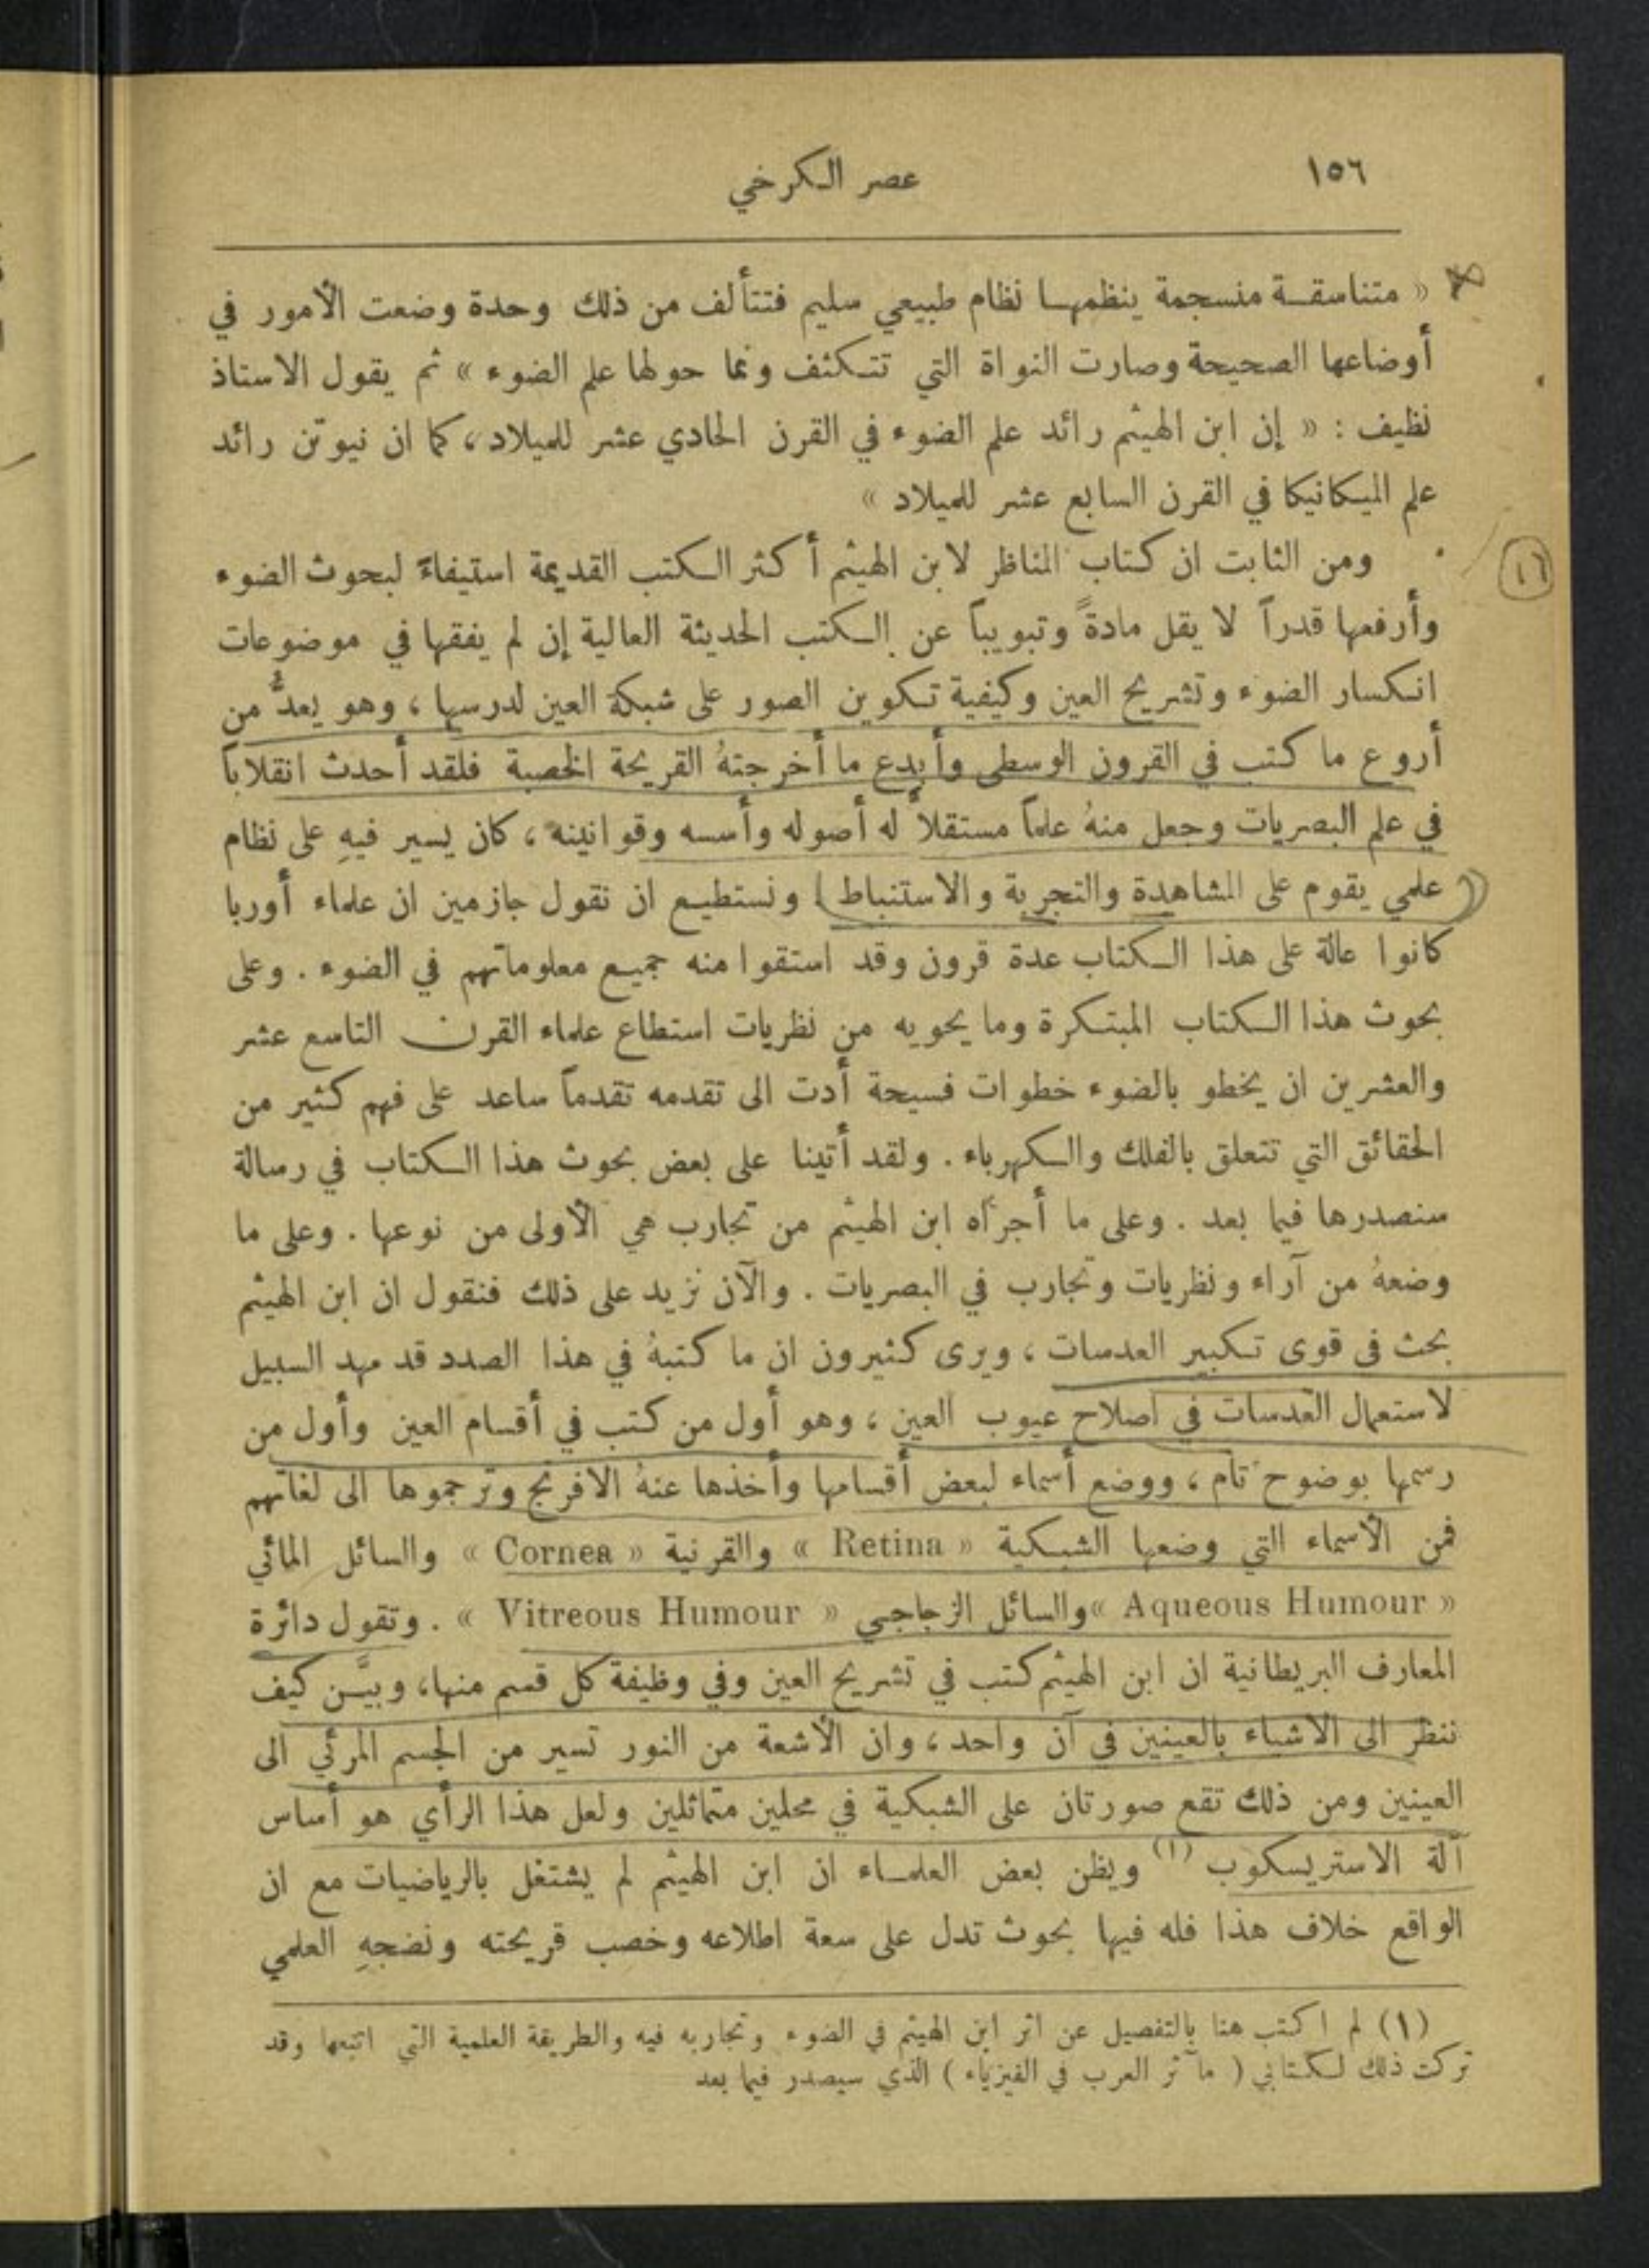 ١٥٦
عصر الكرخي
« متناسقة منسجمة ينظمها نظام طبيعي سليم فتتألف من ذلك وحدة وضعت الأمور في
أوضاعها الصحيحة وصارت النواة التي تتكثف ونما حولها علم الضوء » ثم يقول الاستاذ
نظيف : « إن ابن الهيثم رائد علم الضوء في القرن الحادي عشر للميلاد ، كما ان نيوتن رائد
علم الميكانيكا في القرن السابع عشر للميلاد »
١٦
ومن الثابت ان كتاب المناظر لابن الهيثم أكثر الكتب القديمة استيفاءً لبحوث الضوء
وأرفعها قدراً لا يقل مادةً وتبويباً عن الكتب الحديثة العالية إن لم يفقها في موضوعات
انكسار الضوء وتشريح العين وكيفية تكوين الصور على شبكة العين لدرسها ، وهو يعدُّ من
أروع ما كتب في القرون الوسطى وأبدع ما أخرجتهُ القريحة الخصبة فلقد أحدث انقلاباً
في علم البصريات وجعل منهُ علماً مستقلاً له أصوله وأسسه وقوانينه ، كان يسير فيهِ على نظام
علمي يقوم على المشاهدة والتجربة والاستنباط ) ونستطيع ان نقول جازمين ان علماء أوربا
كانوا عالة على هذا الكتاب عدة قرون وقد استقوا منه جميع معلوماتهم في الضوء . وعلى
بحوث هذا الكتاب المبتكرة وما يحويه من نظريات استطاع علماء القرن التاسع عشر
والعشرين ان يخطو بالضوء خطوات فسيحة أدت الى تقدمه تقدماً ساعد على فهم كثير من
الحقائق التي تتعلق بالفلك والكهرباء . ولقد أتينا على بعض بحوث هذا الكتاب في رسالة
سنصدرها فيما بعد . وعلى ما أجراه ابن الهيثم من تجارب هي الأولى من نوعها . وعلى ما
وضعهُ من آراء ونظريات وتجارب في البصريات . والآن نزيد على ذلك فنقول ان ابن الهيثم
بحث في قوى تكبير العدسات ، ويرى كثيرون ان ما كتبهُ في هذا الصدد قد مهد السبيل
لاستعمال العدسات في اصلاح عيوب العين ، وهو أول من كتب في أقسام العين وأول من
رسمها بوضوح تام ، ووضع أسماء لبعض أقسامها وأخذها عنهُ الافرنج وترجموها الى لغاتهم
فمن الأسماء التي وضعها الشبكية « Retina » والقرنية « Cornea » والسائل المائي
« Aqueous Humour » والسائل الزجاجي « Vitreous Humour » . وتقول دائرة
المعارف البريطانية ان ابن الهيثم كتب في تشريح العين وفي وظيفة كل قسم منها، وبيَّن كيف
ننظر الى الاشياء بالعينين في آن واحد ، وان الأشعة من النور تسير من الجسم المرئي الى
العينين ومن ذلك تقع صورتان على الشبكية في محلين متماثلين ولعل هذا الرأي هو أساس
آلة الاستريسكوب (١) ويظن بعض العلماء ان ابن الهيثم لم يشتغل بالرياضيات مع ان
الواقع خلاف هذا فله فيها بحوث تدل على سعة اطلاعه وخصب قريحته ونضجهِ العلمي
(١) لم اكتب هنا بالتفصيل عن اثر ابن الهيثم في الضوء وتجاربه فيه والطريقة العلمية التي اتبعها وقد
تركت ذلك لكتابي ( مآثر العرب في الفيزياء ) الذي سيصدر فيما بعد